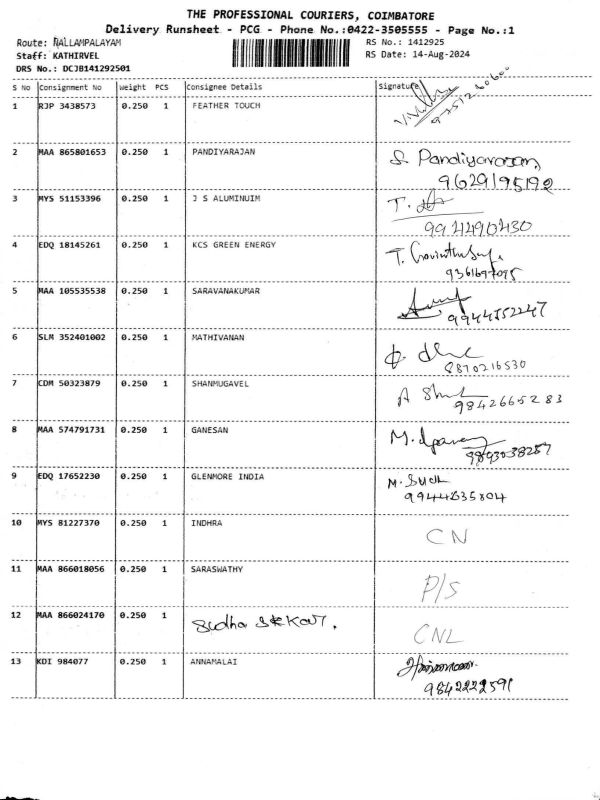 THE PROFESSIONAL COURIERS, COIMBATORE
Delivery Runsheet - PCG - Phone No.:0422-3505555 - Page No.:1
Route: NALLAMPALAYAM RS No.: 1412925
Staff: KATHIRVEL RS Date: 14-Aug-2024
DRS No.: DCJB141292501
S No Consignment No Weight PCS Consignee Details Signature
1 RJP 3438573 0.250 1 FEATHER TOUCH
2 MAA 865801653 0.250 1 PANDIYARAJAN S. Pandiyarasan,
9629195192
3 MYS 51153396 0.250 1 J S ALUMINUIM T.
9944490430
4 EDQ 18145261 0.250 1 KCS GREEN ENERGY T.
9361697095
5 MAA 105535538 0.250 1 SARAVANAKUMAR
9944752247
6 SLM 352401002 0.250 1 MATHIVANAN
8870216530
7 CDM 50323879 0.250 1 SHANMUGAVEL A
9842665283
8 MAA 574791731 0.250 1 GANESAN M.
9 EDQ 17652230 0.250 1 GLENMORE INDIA M.
10 MYS 81227370 0.250 1 INDHRA CN
11 MAA 866018056 0.250 1 SARASWATHY P/S
12 MAA 866024170 0.250 1 Sudha CNL
13 KDI 984077 0.250 1 ANNAMALAI
9842222591